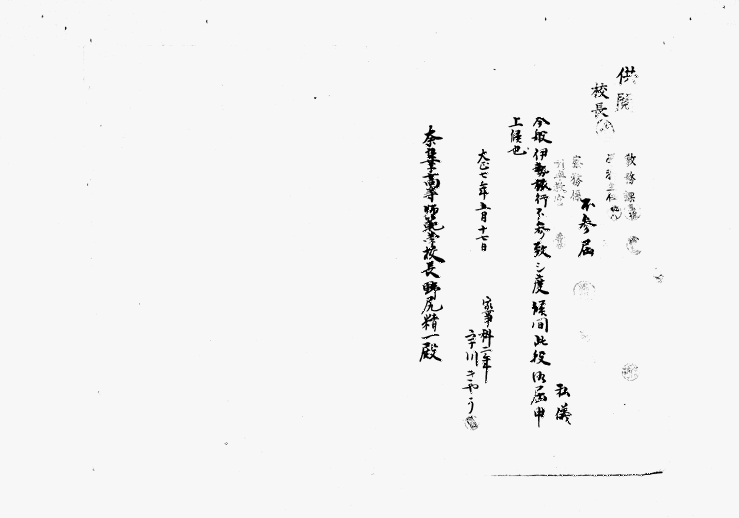 供覧
校長
教務課
庶務係
不参届
私儀
今般伊勢旅行不参致シ度候間此段御届申
上候也
大正七年五月十七日
家事科二年
宇川きやう
奈良女子高等師範学校長野尻精一殿